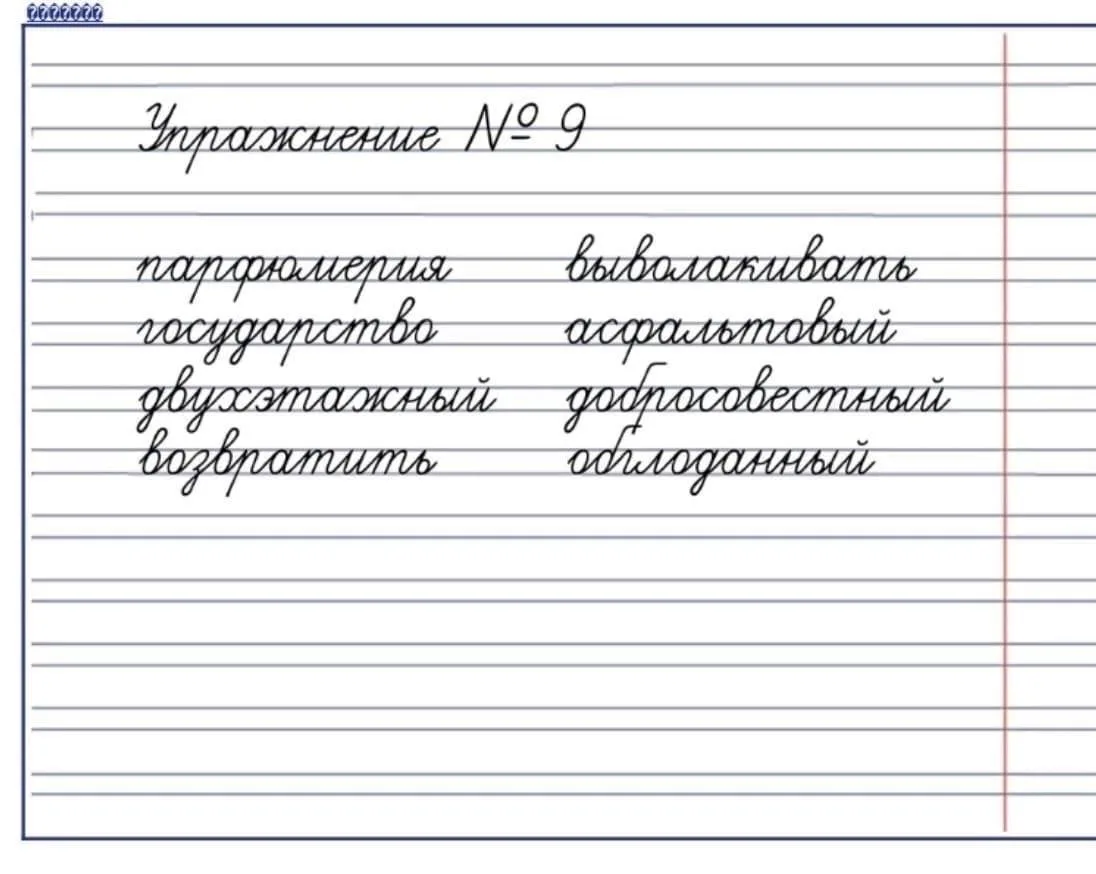 Упражнение № 9
парфюмерия выволакивать
государство асфальтовый
двухэтажный добросовестный
возвратить обглоданный